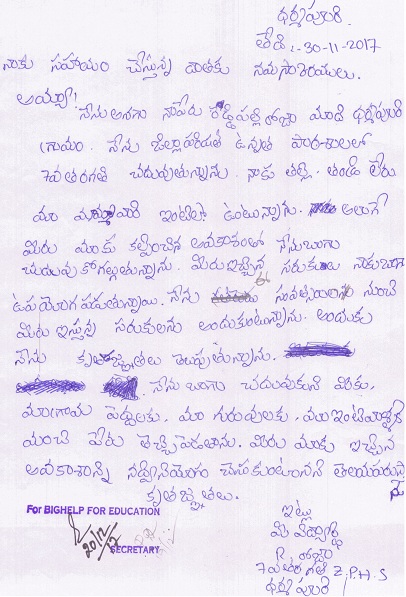 ధర్మపురి.
తేది :- 30-11-2017
నాకు సహాయం చేస్తున్న దాతకు నమస్కారములు.
అయ్యా!
నేను అనగా నాపేరు రోజా మాది ధర్మపురి
గ్రామం. నేను జిల్లాపరిషత్ ఉన్నత పాఠశాలలో
7వతరగతి చదువుతున్నాను. నాకు తల్లి. తండ్రి లేరు
మా ఇంటిలో ఉంటున్నాను. అలాగే
మీరు మాకు కల్పించిన అవకాశంతో నేనుబాగా
చదువుకోగల్గుతున్నాను. మీరుఇచ్చిన సరుకులు నాకుబాగా
ఉపయోగపడుతున్నాయి. నేను నుంచి
మీరు ఇస్తున్న సరుకులను అందుకుంటున్నాను. అందుకు
నేను కృతజ్ఞతలు తెలుపుతున్నాను.
నేను బాగా చదువుకుని
మాగ్రామ పెద్దలకు, మా గురువులకు, మా
మంచి పేరు తెచ్చిపెడతాను. మీరు మాకు ఇచ్చిన
అవకాశాన్ని సద్వినియోగం చేసుకుంటానని
కృతజ్ఞతలు.
ఇట్లు
మీ విద్యార్థి
రోజా
7వతరగతి Z.P.H.S
ధర్మపురి
For BIGHELP FOR EDUCATION
20/12/17
SECRETARY